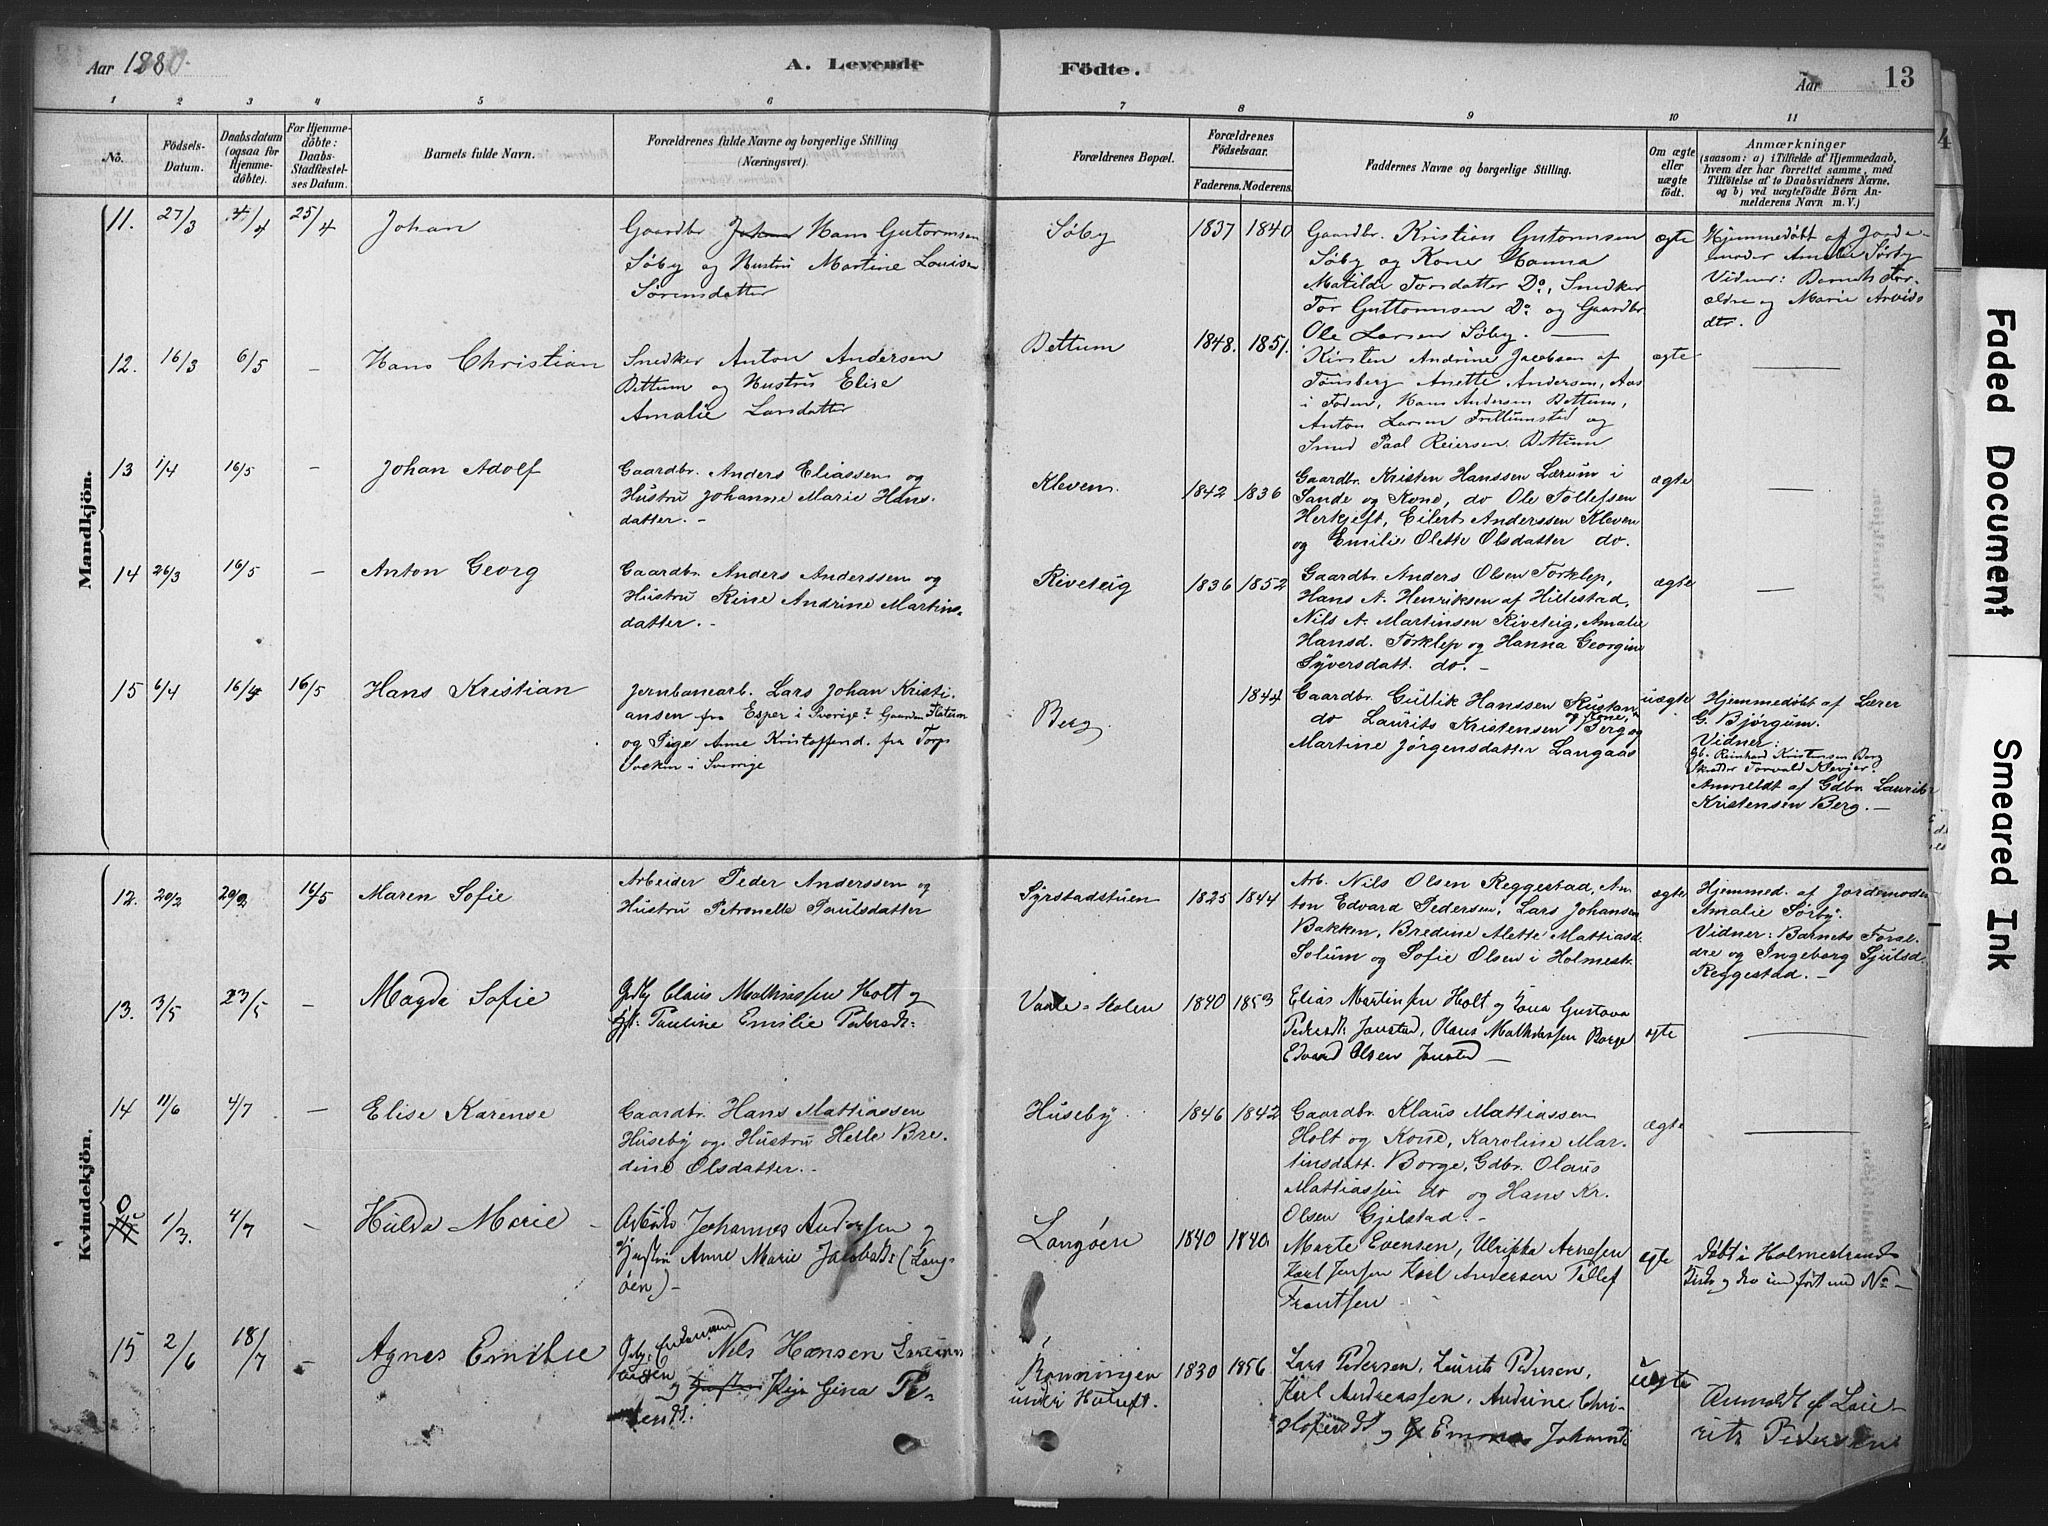 Aar 1880.
A. Levende Födte.
Aar
13
1 2 3 4 5 6 7 8 9 10 11
No.
Födsels-Datum.
Daabsdatum (ogsaa for Hjemmedöbte).
For Hjemmedöbte: Daabs-Stadfæstelses Datum.
Barnets fulde Navn.
Forældrenes fulde Navne og borgerlige Stilling (Næringsvei).
Forældrenes Bopæl.
Forældrenes Födselsaar.
Faderens. Moderens.
Faddernes Navne og borgerlige Stilling.
Om ægte eller uægte födt.
Anmærkninger
(saasom: a) i Tilfælde af Hjemmedaab, hvem der har forrettet samme, med Tilföielse af to Daabsvidners Navne, og b) ved uægtefödte Börn Anmelderens Navn m. V.)
Mandkjön.
11. 27/3 4/4 25/4 Johan
Gaardbr Johan Hans Gutormsen
Söby og Hustru Martine Louise
Sörensdatter
Söby 1837 1840
Gaardbr. Kristian Gutormsen
Söby og Kone Hanna
Matilde Torsdatter Do, Snedker
Tor Guttormsen Do og Gaardbr
Ole Larsen Söby.
ægte
Hjemmedöbt af Jorde-
moder Amalie Sörby
Vidner: Barnets For-
ældre og Marie Arvids
dtr.
12. 16/3 6/5 - Hans Christian
Snedker Anton Andersen
Dettum og Hustru Elise
Amalie Larsdatter
Dettum 1848. 1851.
Kirsten Andrine Jacobsen af
Tönsberg Anette Andersen, Aas
i Foden, Hans Andersen Dettum,
Anton Larsen Trillumstad og
Smed Paul Reiersen Dettum
ægte
13 1/4 16/5 - Johan Adolf
Gaardbr. Anders Eliassen og
Hustru Johanne Marie Hans-
datter. -
Kleven 1842 1836
Gaardbr. Kristen Hanssen Lærum i
Sande og Kone, do Ole Tollefsen
Herkjeft, Eilert Anderssen Kleven
og Emilie Olette Olsdatter do.
ægte
14 26/3 16/5 - Anton Georg
Gaardbr. Anders Anderssen og
Hustru Rine Andrine Martins-
datter. -
Riveteig 1836 1852
Gaardbr. Anders Olsen Torklep,
Hans A. Henriksen af Hillestad,
Nils A. Martinsen Riveteig, Amalie
Hansd. Torklep og Hanna Georgine
Syversdatt. do. -
ægte
15 6/4 16/4 16/5 Hans Kristian
Jernbanearb. Lars Johan Kristi-
ansen fra Esper i Sverige? Gaarden Flatum
og Pige Anne Kristoffersd. fra Torp
Socken i Sverrige
Berg. 1844
Gaardbr. Gullik Hanssen
og Kone,
do Laurits Kristensen Berg og
Martine Jörgensdatter Langaas
uægte
Hjemmedöbt af Lærer
G. Bjórgum.
Vidner:
Gb. Reinhard Kristensen Berg
Skrædder Torvald Klevjer.
Anmeldt af Gdbr. Laurits
Kristensen Berg. -
Kvindekjön.
12. 20/2 29/2 16/5 Maren Sofie
Arbeider Peder Anderssen og
Hustru Petronelle Paulsdatter
Syrstadstuen 1825 1844
Arb. Nils Olsen Reggestad, An-
ton Edvard Pedersen, Lars Johansen
Bakken, Bredine Alette Mattiasd.
Solum og Sofie Olsen i Holmestr.
ægte
Hjemmed. af Jordemoder
Amalie Sörby.
Vidner: Barnets Foræl-
dre og Ingeborg Sjulsd.
Reggestad. -
13. 3/5 23/5 - Magda Sofie
Grdbr Claus Mathiassen Holt og
Hst: Pauline Emilie Pedersdt:
Vaale-Holen 1840 1853
Elias Martinsen Holt og Gustava
Pedersdt. Jarstad, Olaus Mathiassen Borge
Edvard Olsen Jarstad -
ægte
14 11/6 4/7 - Elise Karense
Gaardbr. Hans Mattiassen
Huseby og Hustru Helle Bre-
dine Olsdatter. -
Huseby 1846 1842
Gaardbr. Klaus Mattiassen
Holt og Kone, Karoline Mar-
tinsdatt. Borge, Gdbr. Olaus
Mattiassen do og Hans Kr.
Olsen Gjelstad. -
ægte
0 1/3. 4/7 - Hulda Marie
Arbeider Johannes Andersen og
Hustru Anne Marie Jacobsdt: (Lang-
öen) -
Langöen 1840 1840
Marte Evensen, Ulrikka Arnesen
Karl Jensen Karl Andersen Tollef
Frantsen -
ægte
döbt i Holmestrands
Kirke og der indfört med No -
15 2/6 18/7 - Agnes Emilie
Nils Hansen
og Hustru Pige Gina Pe-
dersdt.
Rönningen
under Holteft. 1830 1856
Lars Pedersen, Laurits Pedersen,
Karl Andreassen, Andrine Chri-
stofersdt og Emma Johannsdt
uægte
Anmeldt af Lau-
rits Pedersen
Faded Document
Smeared Ink